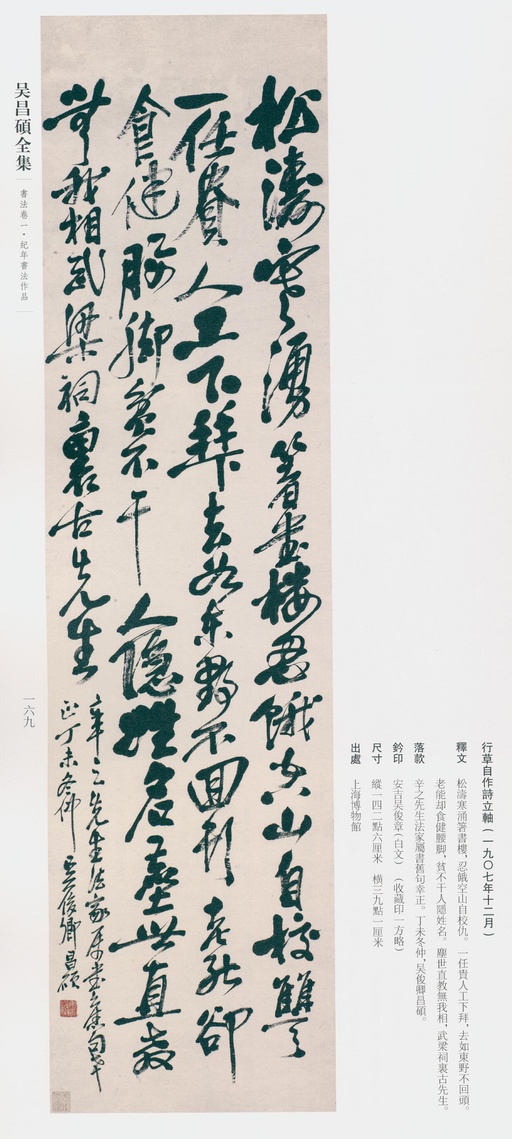 行草自作詩立軸(一九〇七年十二月)
釋文 松濤寒涌著書樓,忍餓空山自校仇。一任貴人工下拜,去如東野不回頭。
老能却食健腰脚,貧不干人隱姓名。塵世直教無我相,武梁祠裏古先生。
落款 辛之先生法家屬書舊句幸正。丁未冬仲,吴俊卿昌碩。
鈐印 安吉吴俊章(白文) (收藏印一方略)
尺寸 縱一四二點六厘米 橫三九點一厘米
出處 上海博物館
松濤寒湧著書樓忍餓空山自校讐
一任貴人工下拜去如東野不回頭老能卻
食健腰脚貧不干人隱姓名塵世直教
無我相武梁祠裏古先生
辛之先生法家屬書舊句幸
正丁未冬仲吳俊卿昌碩
吴昌碩全集
書法卷一·紀年書法作品
一六九